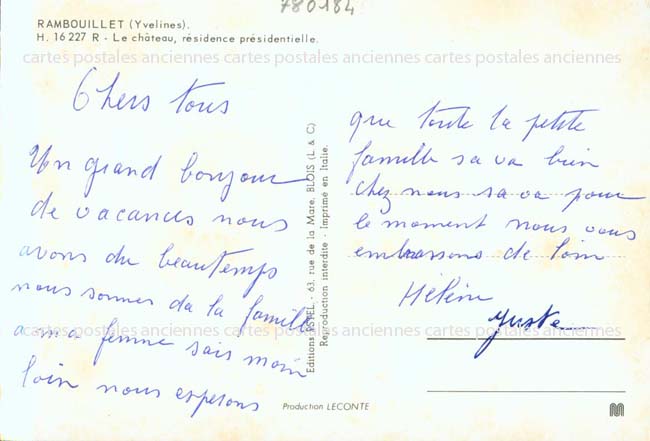 780184
RAMBOUILLET (Yvelines).
H. 16 227 R - Le château, résidence présidentielle.
cartes postales anciennes cartes postales anciennes cartes postales anciennes
Chers tous
Un grand bonjour
de vacances nous
avons du beautemps
nous sommes da la famille
a ma femme sais moin
loin nous esperons
Editions ESTEL - 63, rue de la Mare, BLOIS (L & C)
Reproduction interdite - Imprimé en Italie.
que toute la petite
famille sa va bien
chez nous sa va pour
le moment nous vous
embrassons de loin
Hélène
Juste
cartes postales anciennes cartes postales anciennes cartes postales anciennes
Production LECONTE